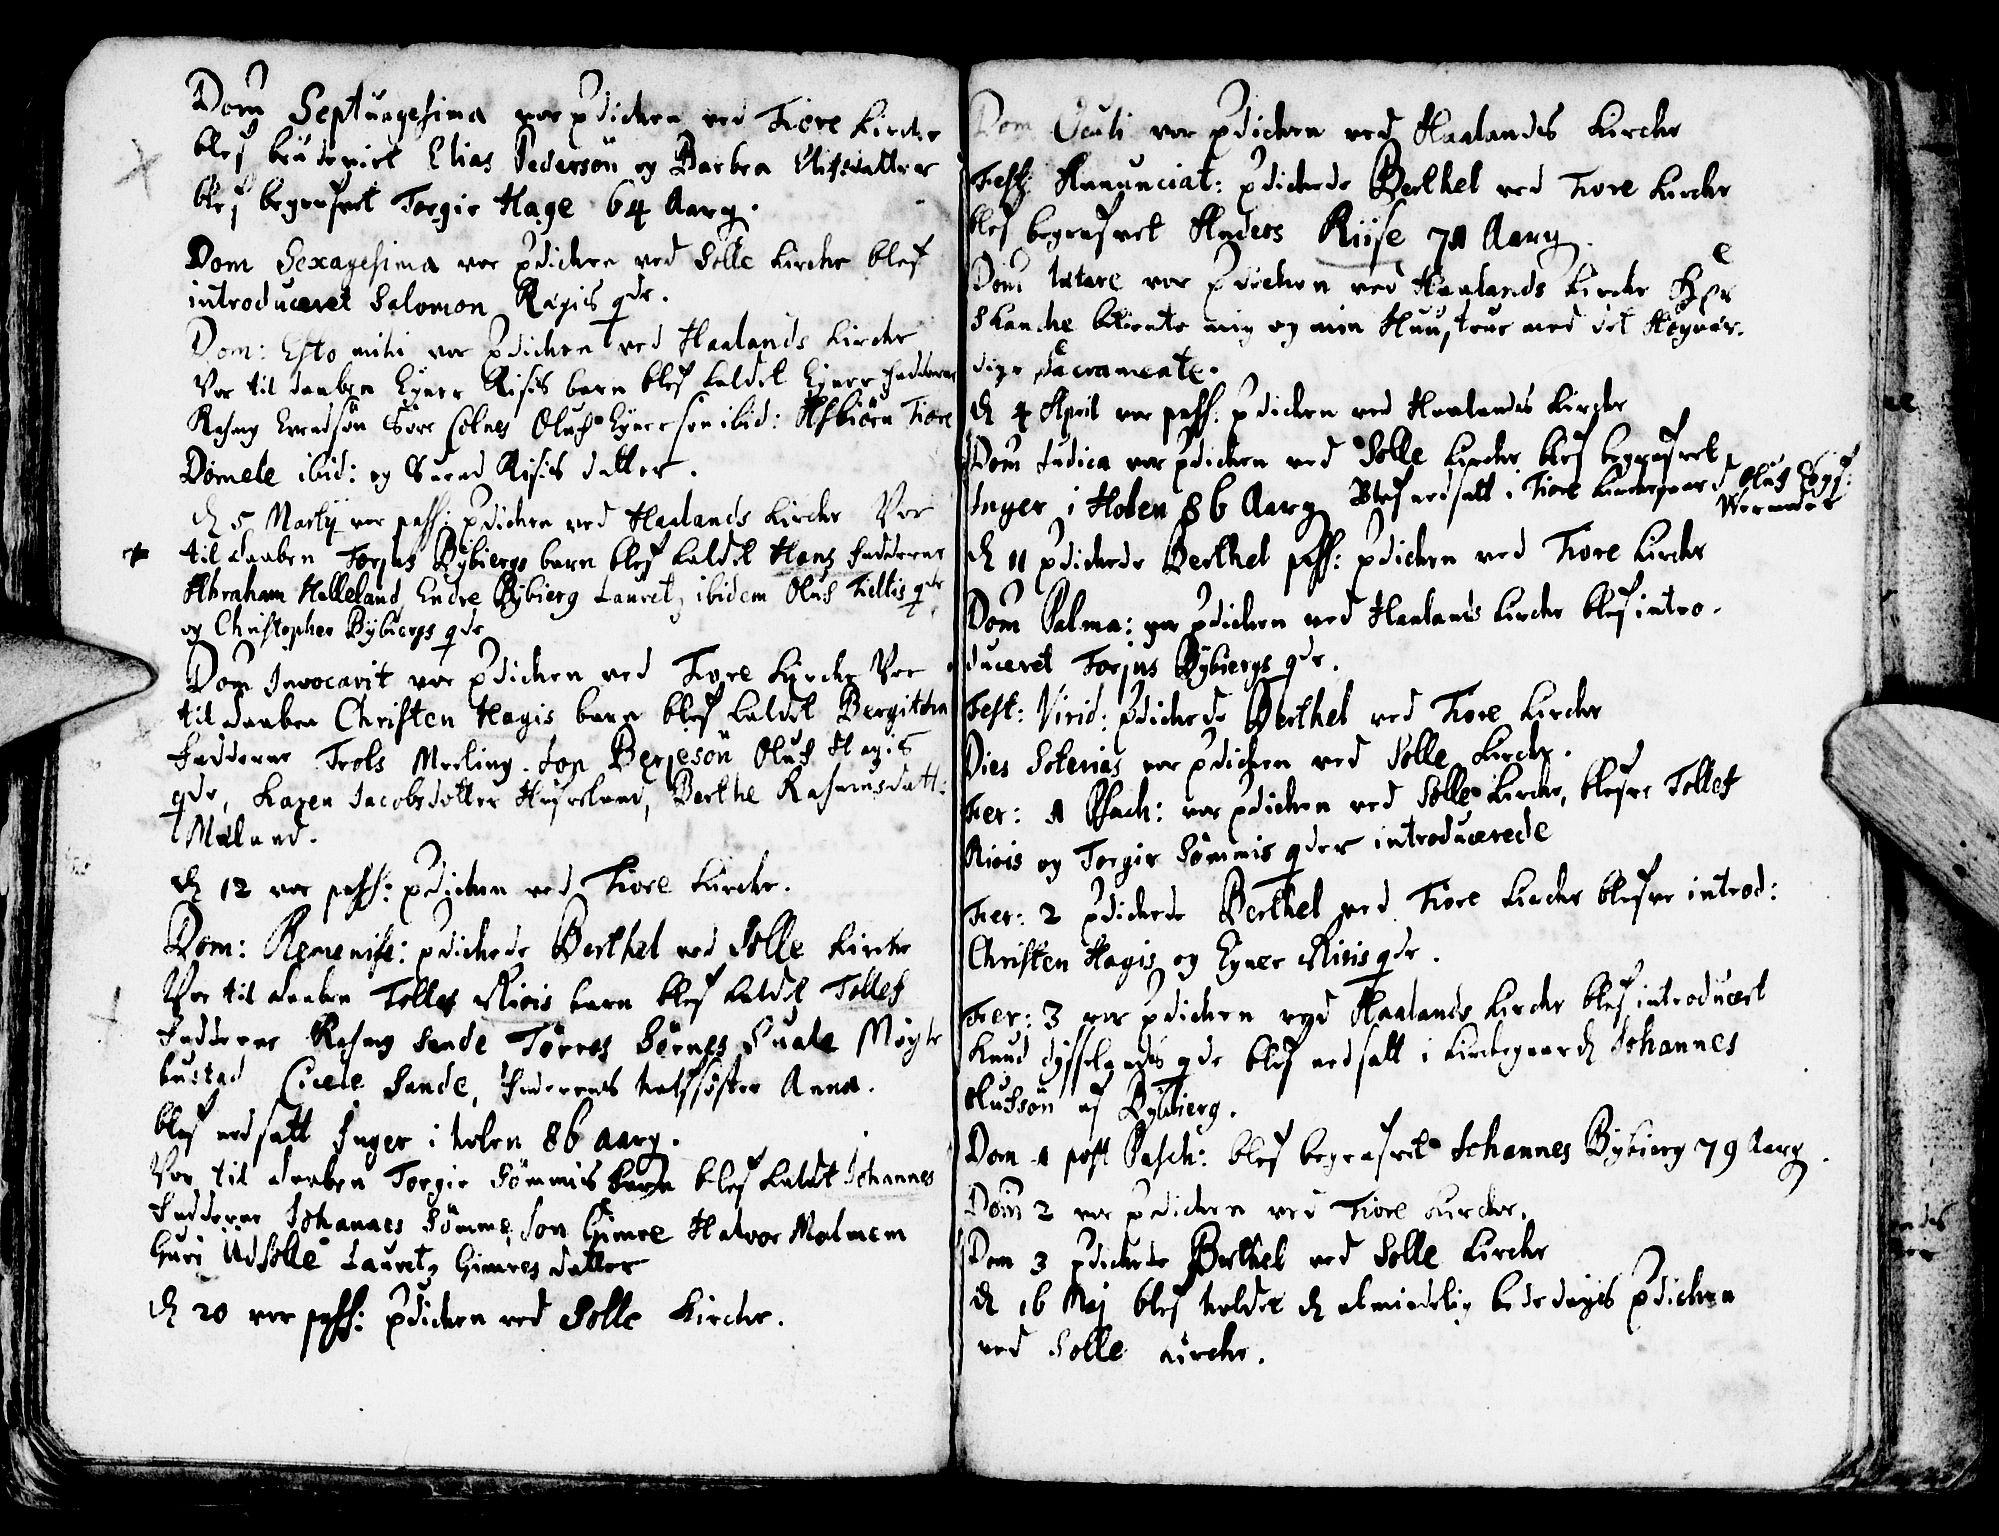 Dom Septuagesima var pdicken ved Tiore Kircke
blef brudeviet Elias Pedersøn og Barbra Elisdatter
blef begrafvet Torgir Hage 64 Aarg.
Dom Sexagesima var pdicken ved Solle Kircke blef
introduceret Salomon Rægis qde.
Dom: Esto mihi var pdicken ved Haalands Kircke
Var til daaben Eyner Risis barn blef kaldet Eyner Fadderne
Rasmg Evendsøn Tiore Colnes Oluf Eynersøn ibid: Asbiörn Tiore
Dömele ibid: og Risis datter.
d 5 Martij var pass: pdicken ved Haalands Kircke Var
til daaben Torjus Bybiergs barn blef kaldet Hans Fadderne
Abraham Helleland Endre Bybierg Lauretz ibidem Oluf Tieltis qde
og Christopher Bybiergs qde
Dom Invocavit var pdicken ved Tiore Kircke Var
til daaben Christen Hagis barn blef kaldet Bergitha
Fadderne Trols Meeling Jon Berjesøn Oluf Hagis
qde, Karen Jacobsdotter, Berthe Rasmusdatt:
Mæland.
d 12 var pass: pdicken ved Tiore Kircke.
Dom: Remenise: pdickede Berthel ved Solle Kircke
Var til daaben Tollef Riois barn blef kaldet Tollef
Fadderne Rasmg Sande Törres Sörnes Myglebustad
Cicele Sande, Faderens halfsøster Anna.
blef nedsatt Inger i holen 86 aarg.
Var til daaben Torgir Sömmis barn blef kaldt Johannes
Fadderne Johannes Sömme, Jon Gimre Halvor Malmem
Guri Udsolle Lauretz Gimres datter
d 20 var pass: pdicken ved Solle Kircke.
Dom Oculi var pdicken ved Haalandes Kircke
Fest: Anunciat: pdickede Berthel ved Tiore Kircke
blef begrafvet Anders Riise 71 Aarg.
Dom lætare var pdicken ved Haalands Kircke Her
Skancke betiente mig og min Huustrue med det Høyvær-
dige Sacramente.
d 4 April var pass: pdicken ved Haalandes Kircke
Dom Judica var pdicken ved Solle Kircke blef begrafvet
Inger i Holen 86 Aarg Blef nedsatt i Tiore Kirckegaard Oluf
d 11 pdickede Berthel pass: pdicken ved Tiore Kircke
Dom Palma: var pdicken ved Haalands Kircke blef intro-
duceret Torjus Bybiergs qde.
Fest: Virid: pdickede Berthel ved Tiore Kircke
Dies Soterias var pdicken ved Solle Kircke.
Fer: 1 Pasch: var pdicken ved Solle Kircke, blefve Tollef
Riois og Torgir Sömmis qder introducerede
Fer: 2 pdickede Berthel ved Tiore Kircke blefve introd:
Christen Hagis og Eyner Risis qde.
Fer: 3 var pdicken ved Haalands Kircke blef introducert
Knud qde blef nedsatt i Kirckegaard Johannes
Olufsøn af Bybierg.
Dom 1 post Pasch: blef begrafvet Johannes Bybierg 79 Aarg.
Dom 2 var pdicken ved Tiore Kircke.
Dom 3 pdickede Berthel ved Solle Kircke
d 16 Maj blef holdet d almindelig bededagis pdicken
ved Solle Kircke.